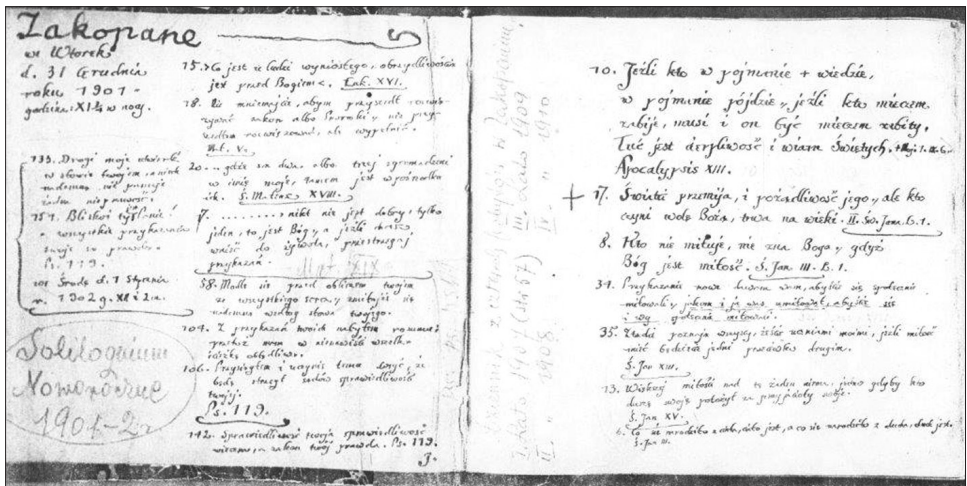 Zakopane
we Wtorek
d. 31 Grudnia
roku 1901 -
godzina XI¼ w nocy.
133. Drogi moje utwierdź
w słowie twojem, a niech
nademną nie panuje
żadna nieprawość.
151. Bliskoś ty Panie!
a wszystkie przykazania
twoje są prawdą.
Ps. 119.
we Środę d. 1 Stycznia
r. 1902 g. XII i 2 m.
Soliloquium
Noworoczne
1901-2 r.
15. Co jest u ludzi wyniosłego, obrzydliwością
jest przed Bogiem. Łuk. XVI.
18. Nie mniemajcie, abym przyszedł rozwią-
zywać zakon albo Proroki; nie przy-
szedłem rozwiązować, ale wypełnić.
Mt. V.
20. gdzie są dwa albo trzej zgromadzeni
w imię moje, tamem jest w pośrodku
ich. Ś. Mateusz XVIII.
17. ........ nikt nie jest dobry, tylko
jeden, to jest Bóg, a jeźli chcesz
wnijść do żywota, przestrzegaj
przykazań.
Mat XIX
58. Modlę się przed obliczem twojem
ze wszystkiego serca, zmiłujże się
nademną według słowa twojego.
104. Z przykazań twoich nabyłem rozumu;
przetoż mam w nienawiści wszelką
ścieżkę obłędliwą.
106. Przysiągłem i uczynię temu dosyć, że
będę strzegł sądów sprawiedliwości
twojej.
Ps. 119.
142. Sprawiedliwość twoja sprawiedliwość
wieczna, a zakon twój prawda. Ps. 119.
3.
Zakopanem
III. Lato 1909
IV. " " 1910
I. Lato 1907
II. " " 1908
10. Jeźli kto w pojmanie wiedzie,
w pojmanie pójdzie, jeźli kto mieczem
zabije, musi i on być mieczem zabity.
Tuć jest cierpliwość i wiara Świętych.
Apocalypsis XIII.
17. Świat przemija, i pożądliwość jego, ale kto
czyni wolę Bożą, trwa na wieki. II. Św. Jana. L. 1.
8. Kto nie miłuje, nie zna Boga, gdyż
Bóg jest miłość. Ś. Jan III. L. 1.
34. Przykazanie nowe dawam wam, abyście się społecznie
miłowali, jakom i ja was umiłował, abyście się
i wy społecznie miłowali.
35. Ztąd poznają wszyscy, żeście uczniami moimi, jeźli miłość
mieć będziecie jedni przeciwko drugim.
Ś. Jan XIII.
13. Większej miłości nad tę żaden nie ma, jedno gdyby kto
duszę swoję położył za przyjacioły swoje.
Ś. Jan XV.
6. Co się narodziło z ciała, ciało jest, a co się narodziło z ducha, duch jest.
Ś. Jan III.